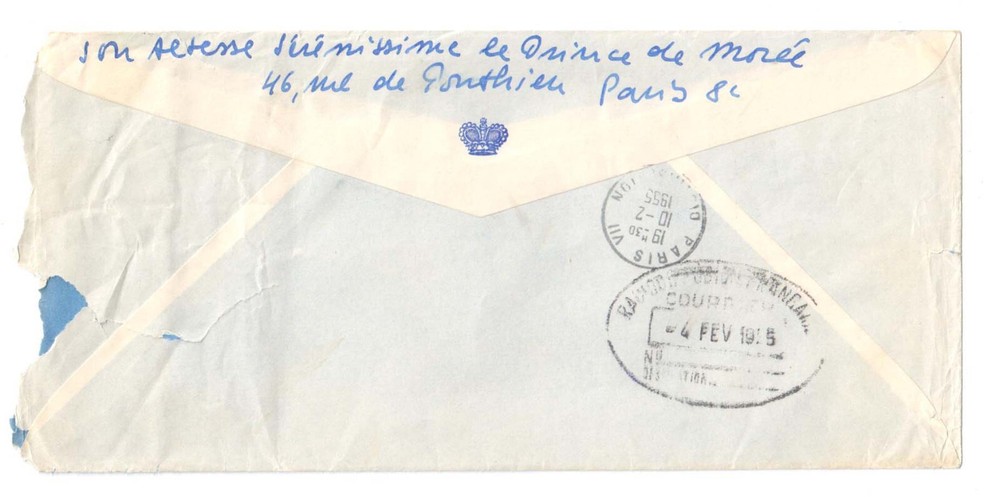 Son Altesse Sérénissime le Prince de Morée
46, rue de Ponthieu Paris 8e
PARIS VII
19H30
10-2
1955
DISTRIBUTION
COURRIER
-4 FEV 19 5
No